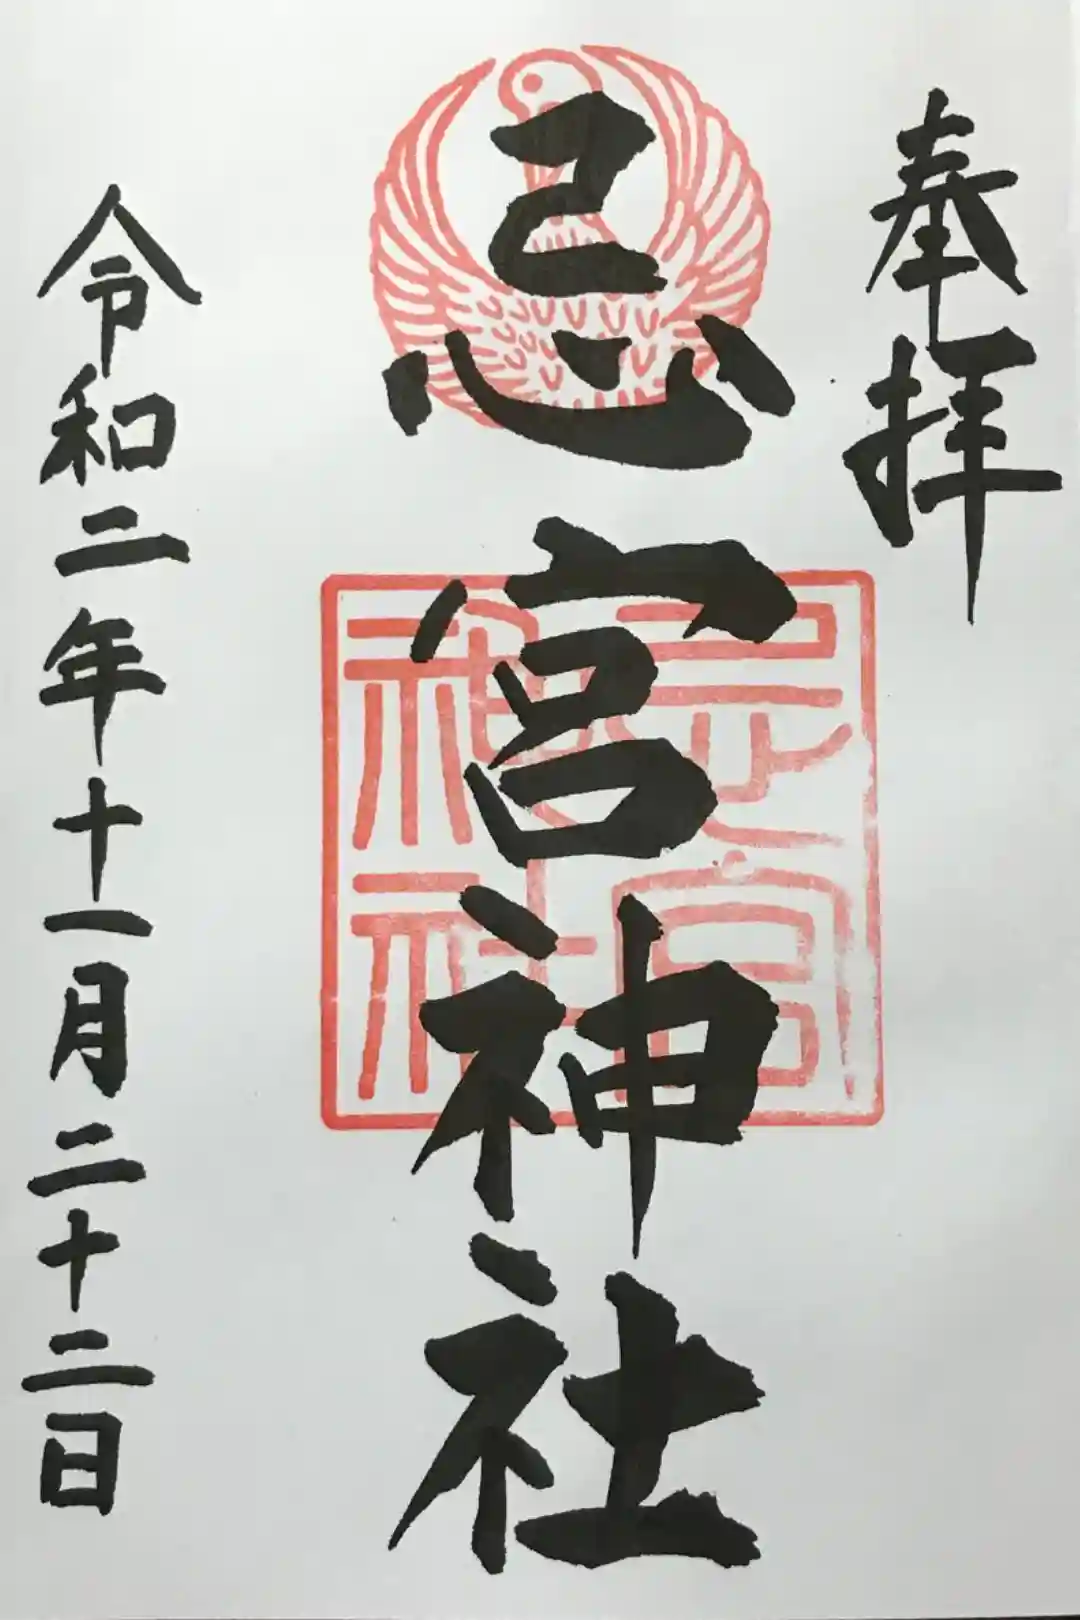 奉拝
忌宮神社
忌宮神社
令和二年十一月二十二日